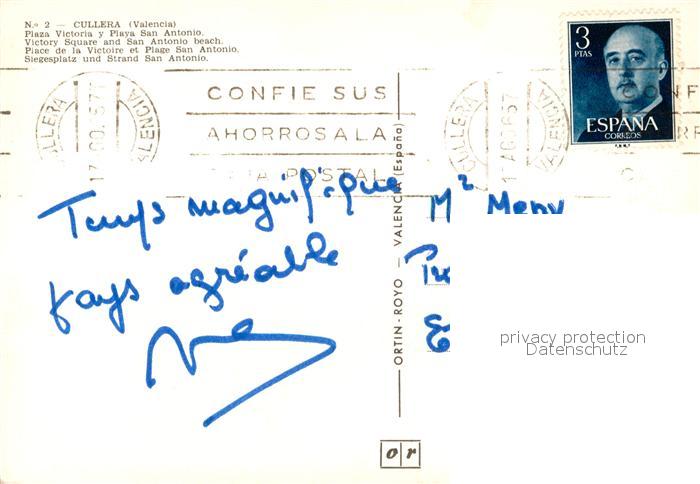 N.º 2 - CULLERA (Valencia)
Plaza Victoria y Playa San Antonio.
Victory Square and San Antonio beach.
Place de la Victoire et Plage San Antonio.
Siegesplatz und Strand San Antonio.
3
PTAS
ESPAÑA
CORREOS
CULLERA
VALENCIA
CONFIE SUS
AHORROS A LA
POSTAL
CULLERA
VALENCIA
Temps magnifique
pays agréable
ORTIN-ROYO — VALENCIA (España)
privacy protection
Datenschutz
or